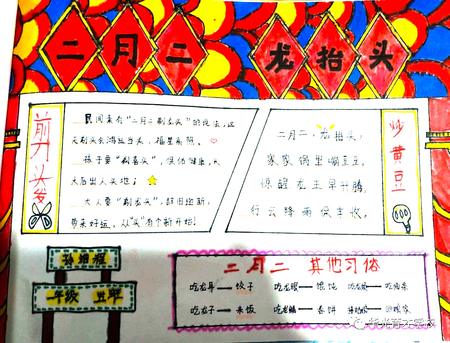 二月二 龙抬头
剪龙头
民间素有“二月二剃龙头”的说法,这
天剃头会鸿运当头,福星高照。
孩子要“剃喜头”,保佑健康,长
大后出人头地;
大人要“剃龙头”,辞旧迎新,
带来好运,从“头”有个新开始!
二月二,龙抬头,
家家锅里嘣豆豆,
惊醒龙王早升腾,
行云降雨保丰收。
炒黄豆
一年级
二月二 其他习俗
吃龙耳 饺子 吃龙眼 馄饨
吃龙子 米饭 吃龙鳞 春饼